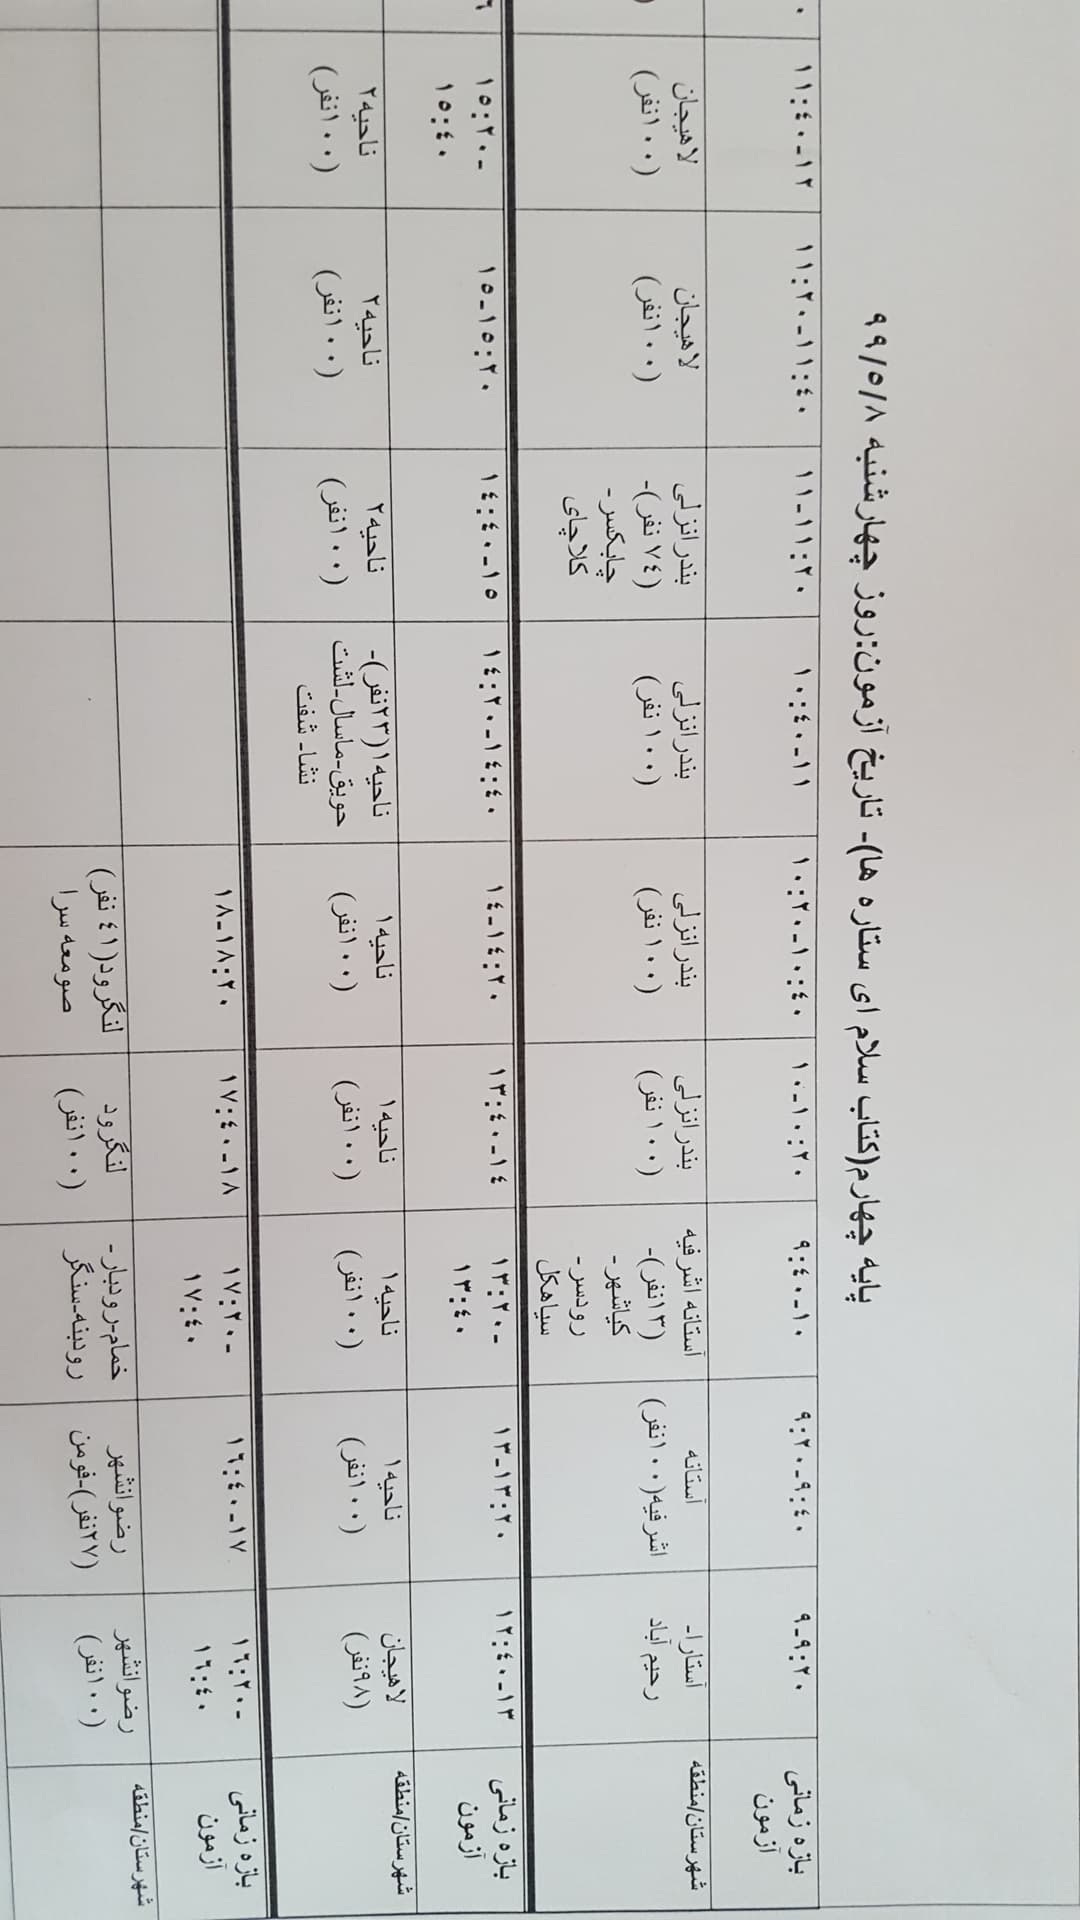 پایه چهارم(کتاب سلام ای ستاره ها)- تاریخ آزمون:روز چهارشنبه ۹۹/۵/۸
بازه زمانی
آزمون
۹-۹:۲۰
۹:۲۰-۹:۴۰
۹:۴۰-۱۰
۱۰-۱۰:۲۰
۱۰:۲۰-۱۰:۴۰
۱۰:۴۰-۱۱
۱۱-۱۱:۲۰
۱۱:۲۰-۱۱:۴۰
۱۱:۴۰-۱۲
شهرستان/منطقه
آستارا-
رحیم آباد
آستانه
اشرفیه(۱۰۰نفر)
آستانه اشرفیه
(۱۳نفر)-
کیاشهر-
رودسر-
سیاهکل
بندرانزلی
(۱۰۰نفر)
بندرانزلی
(۱۰۰نفر)
بندرانزلی
(۱۰۰نفر)
بندرانزلی
(۷۴ نفر)-
چابکسر-
کلاچای
لاهیجان
(۱۰۰نفر)
لاهیجان
(۱۰۰نفر)
بازه زمانی
آزمون
۱۲:۴۰-۱۳
۱۳-۱۳:۲۰
۱۳:۲۰-
۱۳:۴۰
۱۳:۴۰-۱۴
۱۴-۱۴:۲۰
۱۴:۲۰-۱۴:۴۰
۱۴:۴۰-۱۵
۱۵-۱۵:۲۰
۱۵:۲۰-
۱۵:۴۰
شهرستان/منطقه
لاهیجان
(۹۸نفر)
ناحیه۱
(۱۰۰نفر)
ناحیه۱
(۱۰۰نفر)
ناحیه۱
(۱۰۰نفر)
ناحیه۱
(۱۰۰نفر)
ناحیه۱(۲۳نفر)-
حویق-ماسال-لشت
نشا- شفت
ناحیه۲
(۱۰۰نفر)
ناحیه۲
(۱۰۰نفر)
ناحیه۲
(۱۰۰نفر)
بازه زمانی
آزمون
۱۶:۲۰-
۱۶:۴۰
۱۶:۴۰-۱۷
۱۷:۲۰-
۱۷:۴۰
۱۷:۴۰-۱۸
۱۸-۱۸:۲۰
شهرستان/منطقه
رضوانشهر
(۱۰۰نفر)
رضوانشهر
(۲۷نفر)-فومن
خمام-رودبار-
رودبنه-سنگر
لنگرود
(۱۰۰نفر)
لنگرود(۴۱ نفر)
صومعه سرا